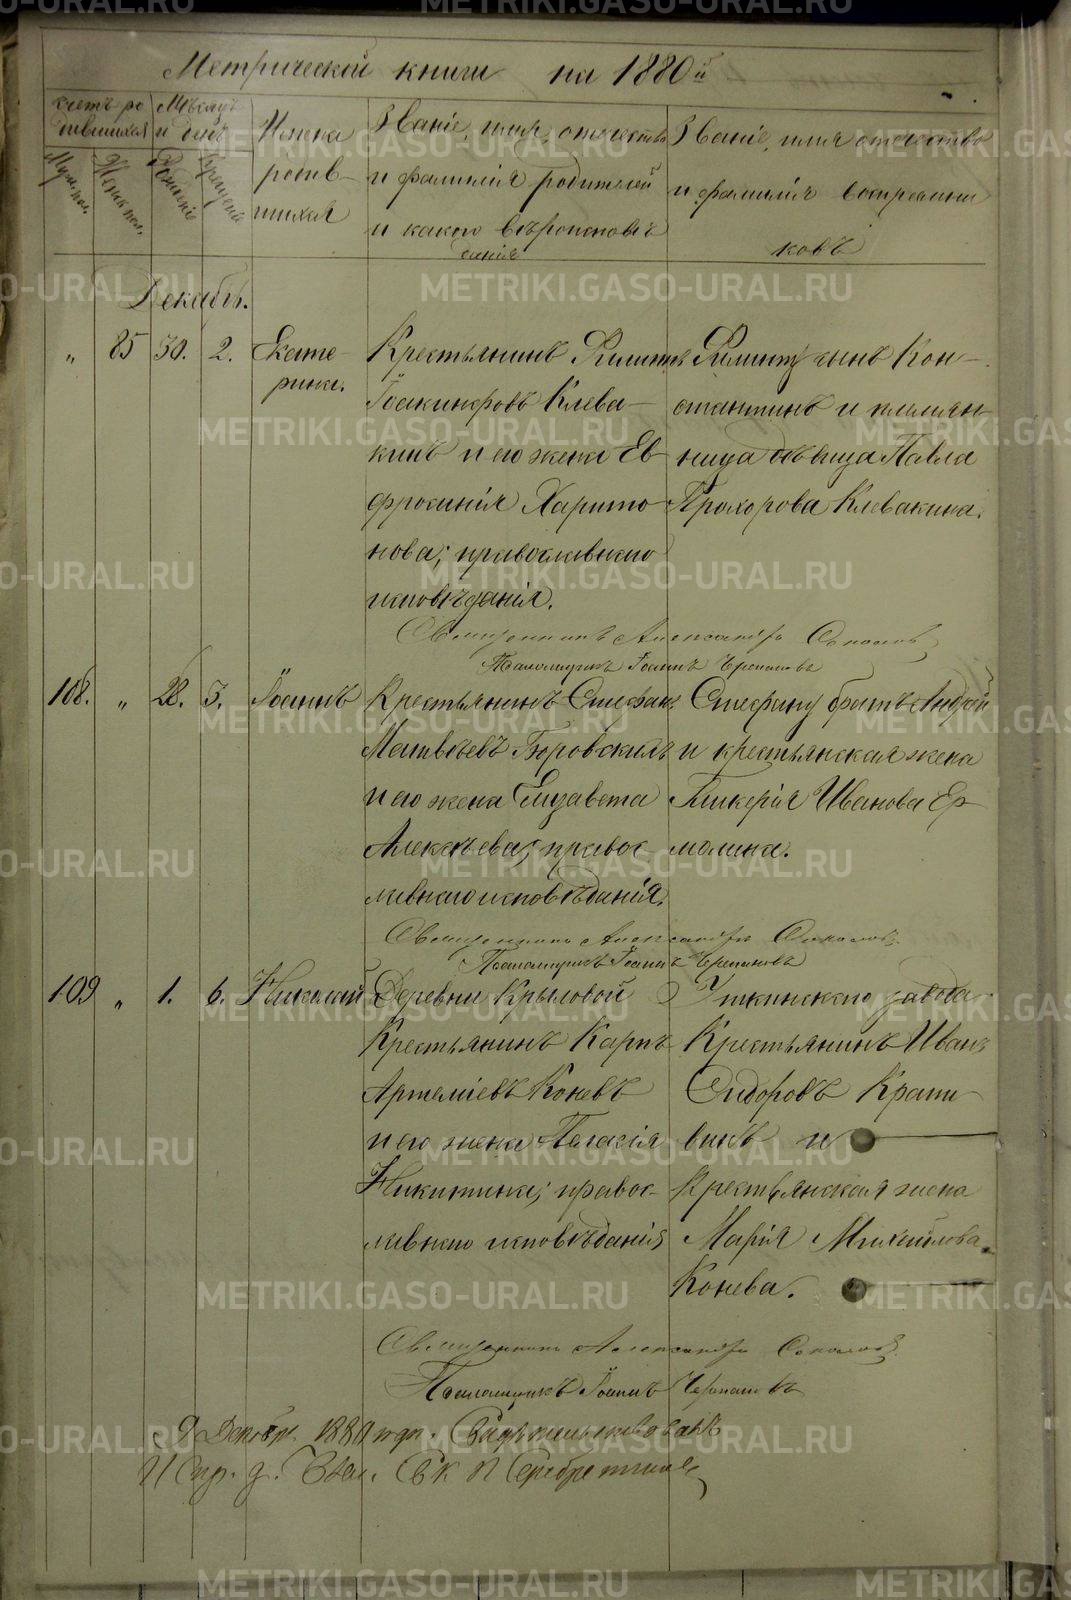 Метрической книги на 1880й
счетъ ро
дившихся
Мѣсяцъ
и день
Мужеска.
Женск. пол.
Рожденіе
Крещеніе
Имена
родив-
шихся
Званіе, имя, отчество
и фамилія родителей
и какого вѣроисповѣ
данія
Званіе, имя отчество
и фамилія воспреемни
ковъ
Декабрь.
" 85 30. 2. Екате-
рина.
Крестьянинъ Филиппъ
Іоакимовъ Клева-
кинъ и его жена Ев
фросинія Харито-
нова; православнаго
исповѣданія.
Филиппу сынъ Кон-
стантинъ и племян-
ница дѣвица Павла
Прохорова Клевакина.
Священникъ Александръ Соколовъ
Псаломщикъ Іоаннъ Черепановъ
108. " 28. 3. Іоаннъ
Крестьянинъ Стефанъ
Матвѣевъ Боровскихъ
и его жена Елизавета
Алексѣева; правос
лавнаго исповѣданія.
Стефану братъ Андрей
и крестьянская жена
Гликерія Иванова Ер-
молина.
Священникъ Александръ Соколовъ
Псаломщикъ Іоаннъ Черепановъ
109 " 1. 6. Николай
Деревни Крыловой
Крестьянинъ Карпъ
Артеміевъ Коневъ
и его жена Пелагія
Никитина; правос-
лавнаго исповѣданія
Уткинскаго завода
Крестьянинъ Иванъ
Сидоровъ Крапи-
винъ и
Крестьянская жена
Марія Михайлова
Конева.
Священникъ Александръ Соколовъ
Псаломщикъ Іоаннъ Черепановъ
9 Декабр. 1880 года. Свидѣтельствовалъ
И спр. д. Благ. Св. П Серебренниковъ
METRIKI.GASO-URAL.RU